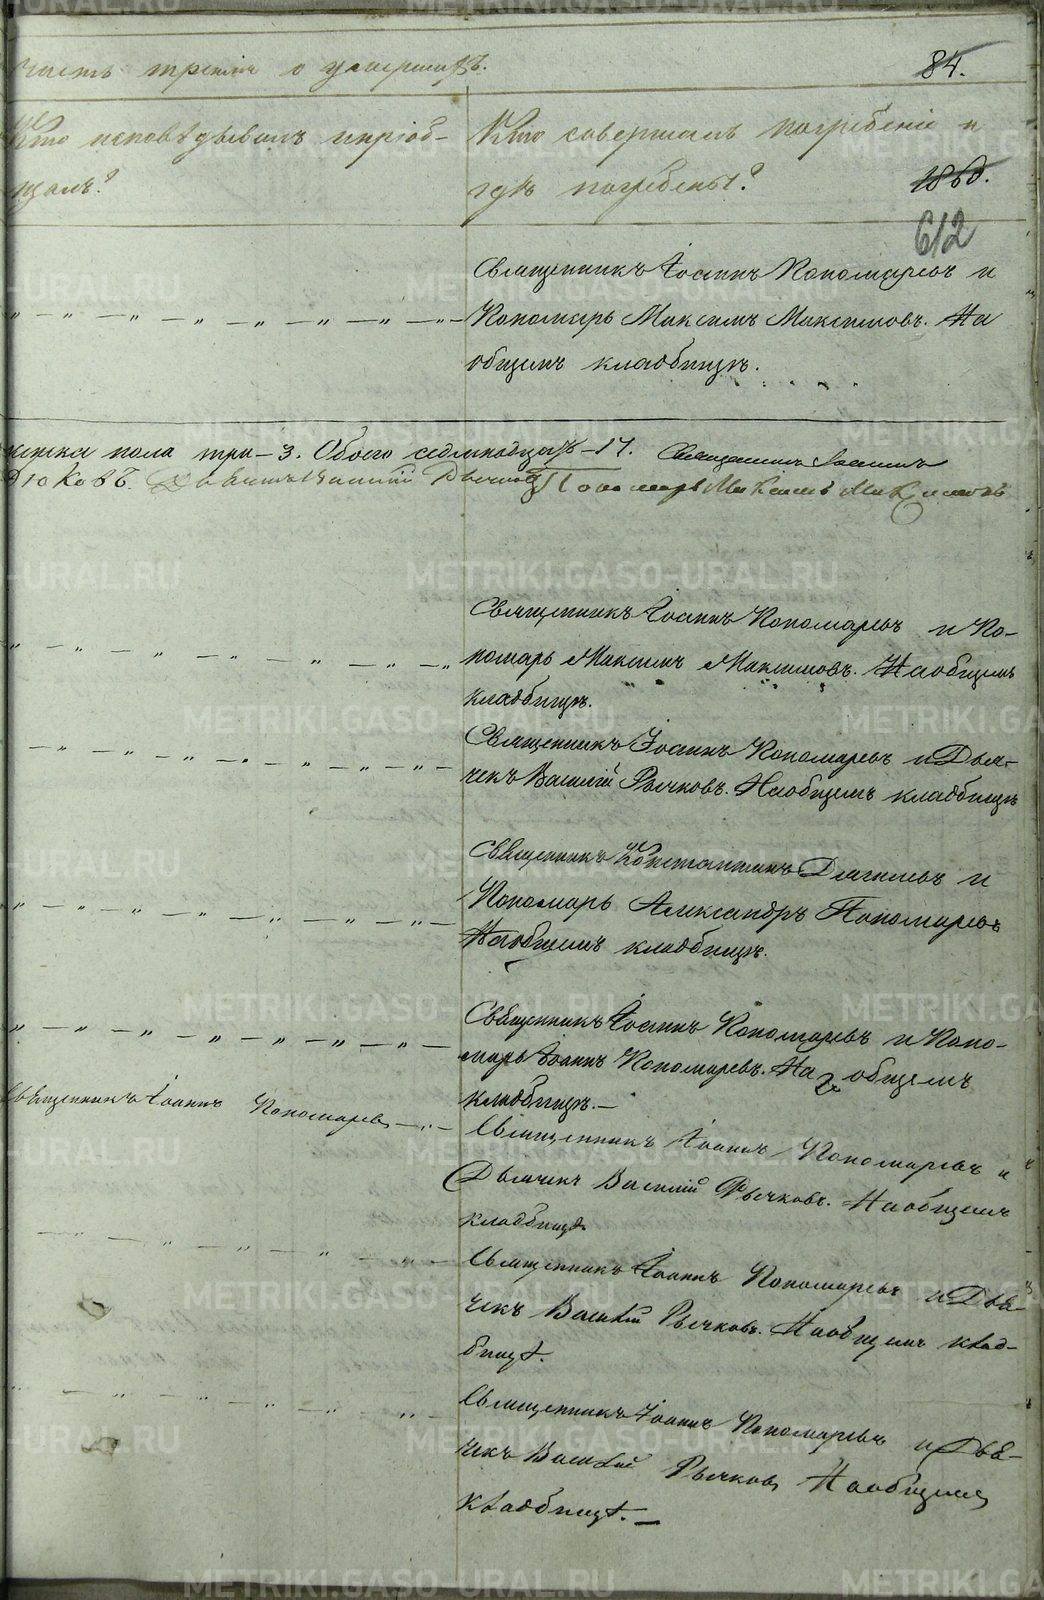 Часть третія о умершихъ.
84.
Кто исповѣдывалъ и пріоб-
щалъ?
Кто совершалъ погребеніе и
гдѣ погребены?
612
Священникъ Іоаннъ Пономаревъ и
Пономарь Максимъ Максимовъ. На
общемъ кладбищѣ.
женска пола три - 3. Обоего семнадцать - 17. Священникъ Іоаннъ
Пономарь Максимъ Максимовъ
Священникъ Іоаннъ Пономаревъ и По-
номарь Максимъ Максимовъ. На общемъ
кладбищѣ.
Священникъ Іоаннъ Пономаревъ и Дья-
чекъ Василій Рычковъ. На общемъ кладбищѣ
Священникъ Константинъ и
Пономарь Александръ Пономаревъ
На общемъ кладбищѣ.
Священникъ Іоаннъ Пономаревъ и Поно-
марь Іоаннъ Пономаревъ. На общемъ
кладбищѣ.
Священникъ Іоаннъ Пономаревъ
Священникъ Іоаннъ Пономаревъ и
Дьячекъ Василій Рычковъ. На общемъ
кладбищѣ
Священникъ Іоаннъ Пономаревъ и Дья-
чекъ Василій Рычковъ. На общемъ клад-
бищѣ.
Священникъ Іоаннъ Пономаревъ и Дья-
чекъ Василій Рычковъ На общемъ
кладбищѣ.
METRIKI.GASO-URAL.RU